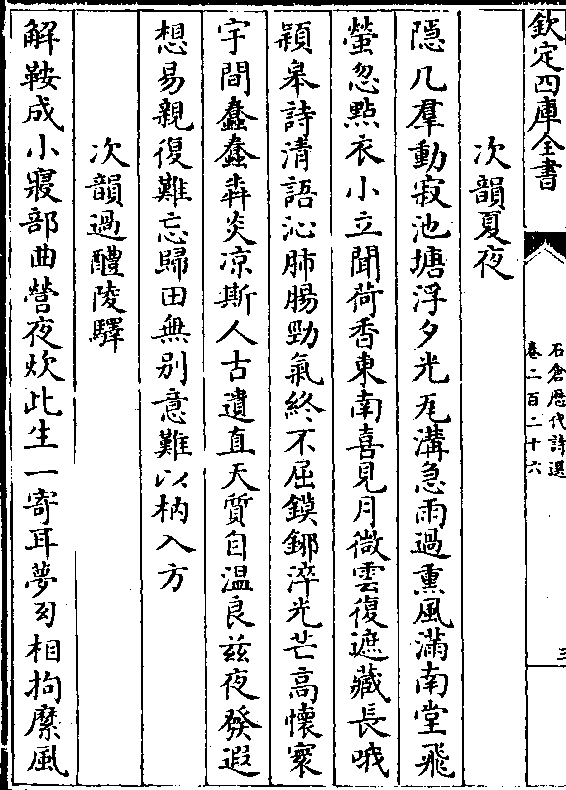 欽定四庫全書
石倉歷代詩選
卷二百二十六
三
次韻夏夜
隱几羣動寂池塘浮夕光瓦溝急雨過熏風滿南堂飛
螢忽點衣小立聞荷香東南喜見月微雲復遮藏長哦
潁皋詩清語沁肺腸勁氣終不屈鏌鋣淬光芒高懷寰
宇間蠢蠢犇炎凉斯人古遺直天質自温良兹夜發遐
想易親復難忘歸田無别意難以枘入方
次韻過醴陵驛
解鞍成小寢部曲營夜炊此生一寄耳夢幻相拘縻風